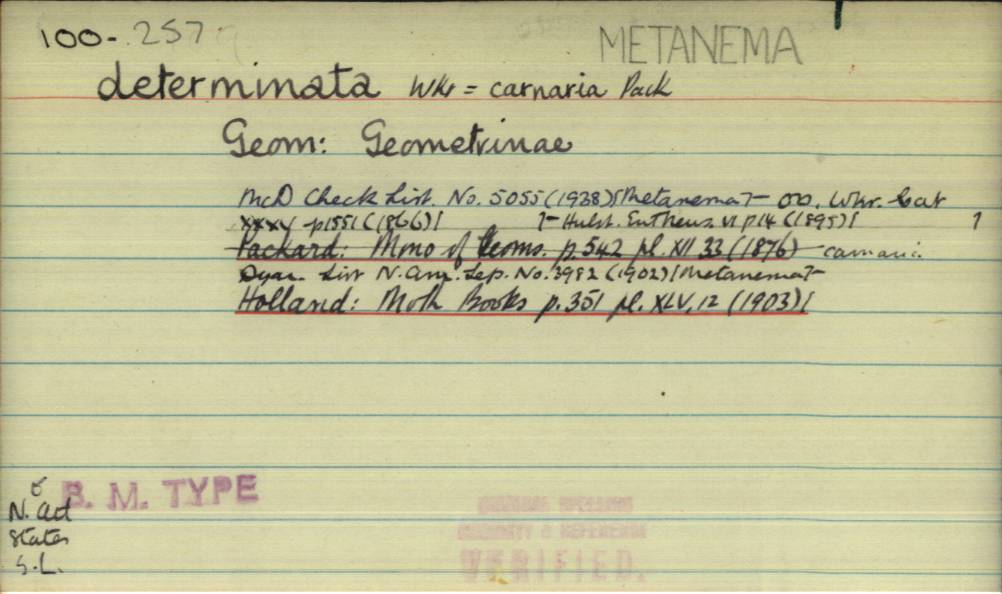 100-257
METANEMA
determinata Wkr = carnaria Pack
Geom: Geometrinae
McD Check List. No. 5055 (1938)[Metanema]- OD. Wkr. Cat
xxxv p1551 (1866)[ ]- Hulst. Entheus. VI p14 (1895)[ 1
Packard: Mono of Geoms. p.542 pl. XII 33 (1876) carnaria
Dyar. List N. Am. Lep. No. 3982 (1902)[Metanema]-
Holland: Moth Books p.351 pl. XLV,12 (1903)[
B. M. TYPE
N.
States
S.L.
ORIGINAL SPELLING
& REFERENCE
VERIFIED.